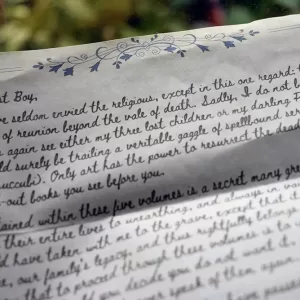 st Boy,
ve seldom envied the religious, except in this one regard:
of reunion beyond the vale of death. Sadly, I do not b
again see either my three lost children or my darling F
ld surely be trailing a veritable gaggle of spellbound ser
uccubi). Only art has the power to resurrect the dead
-out books you see before you.
ained within these five volumes is a secret many gre
their entire lives to unearthing, and always in va
ld have taken with me to the grave, except that it
and thus rightfully belongs
e, our family's legacy, and
that to proceed through these volumes is to
ould you decide you do not want it,
never speak of them again.